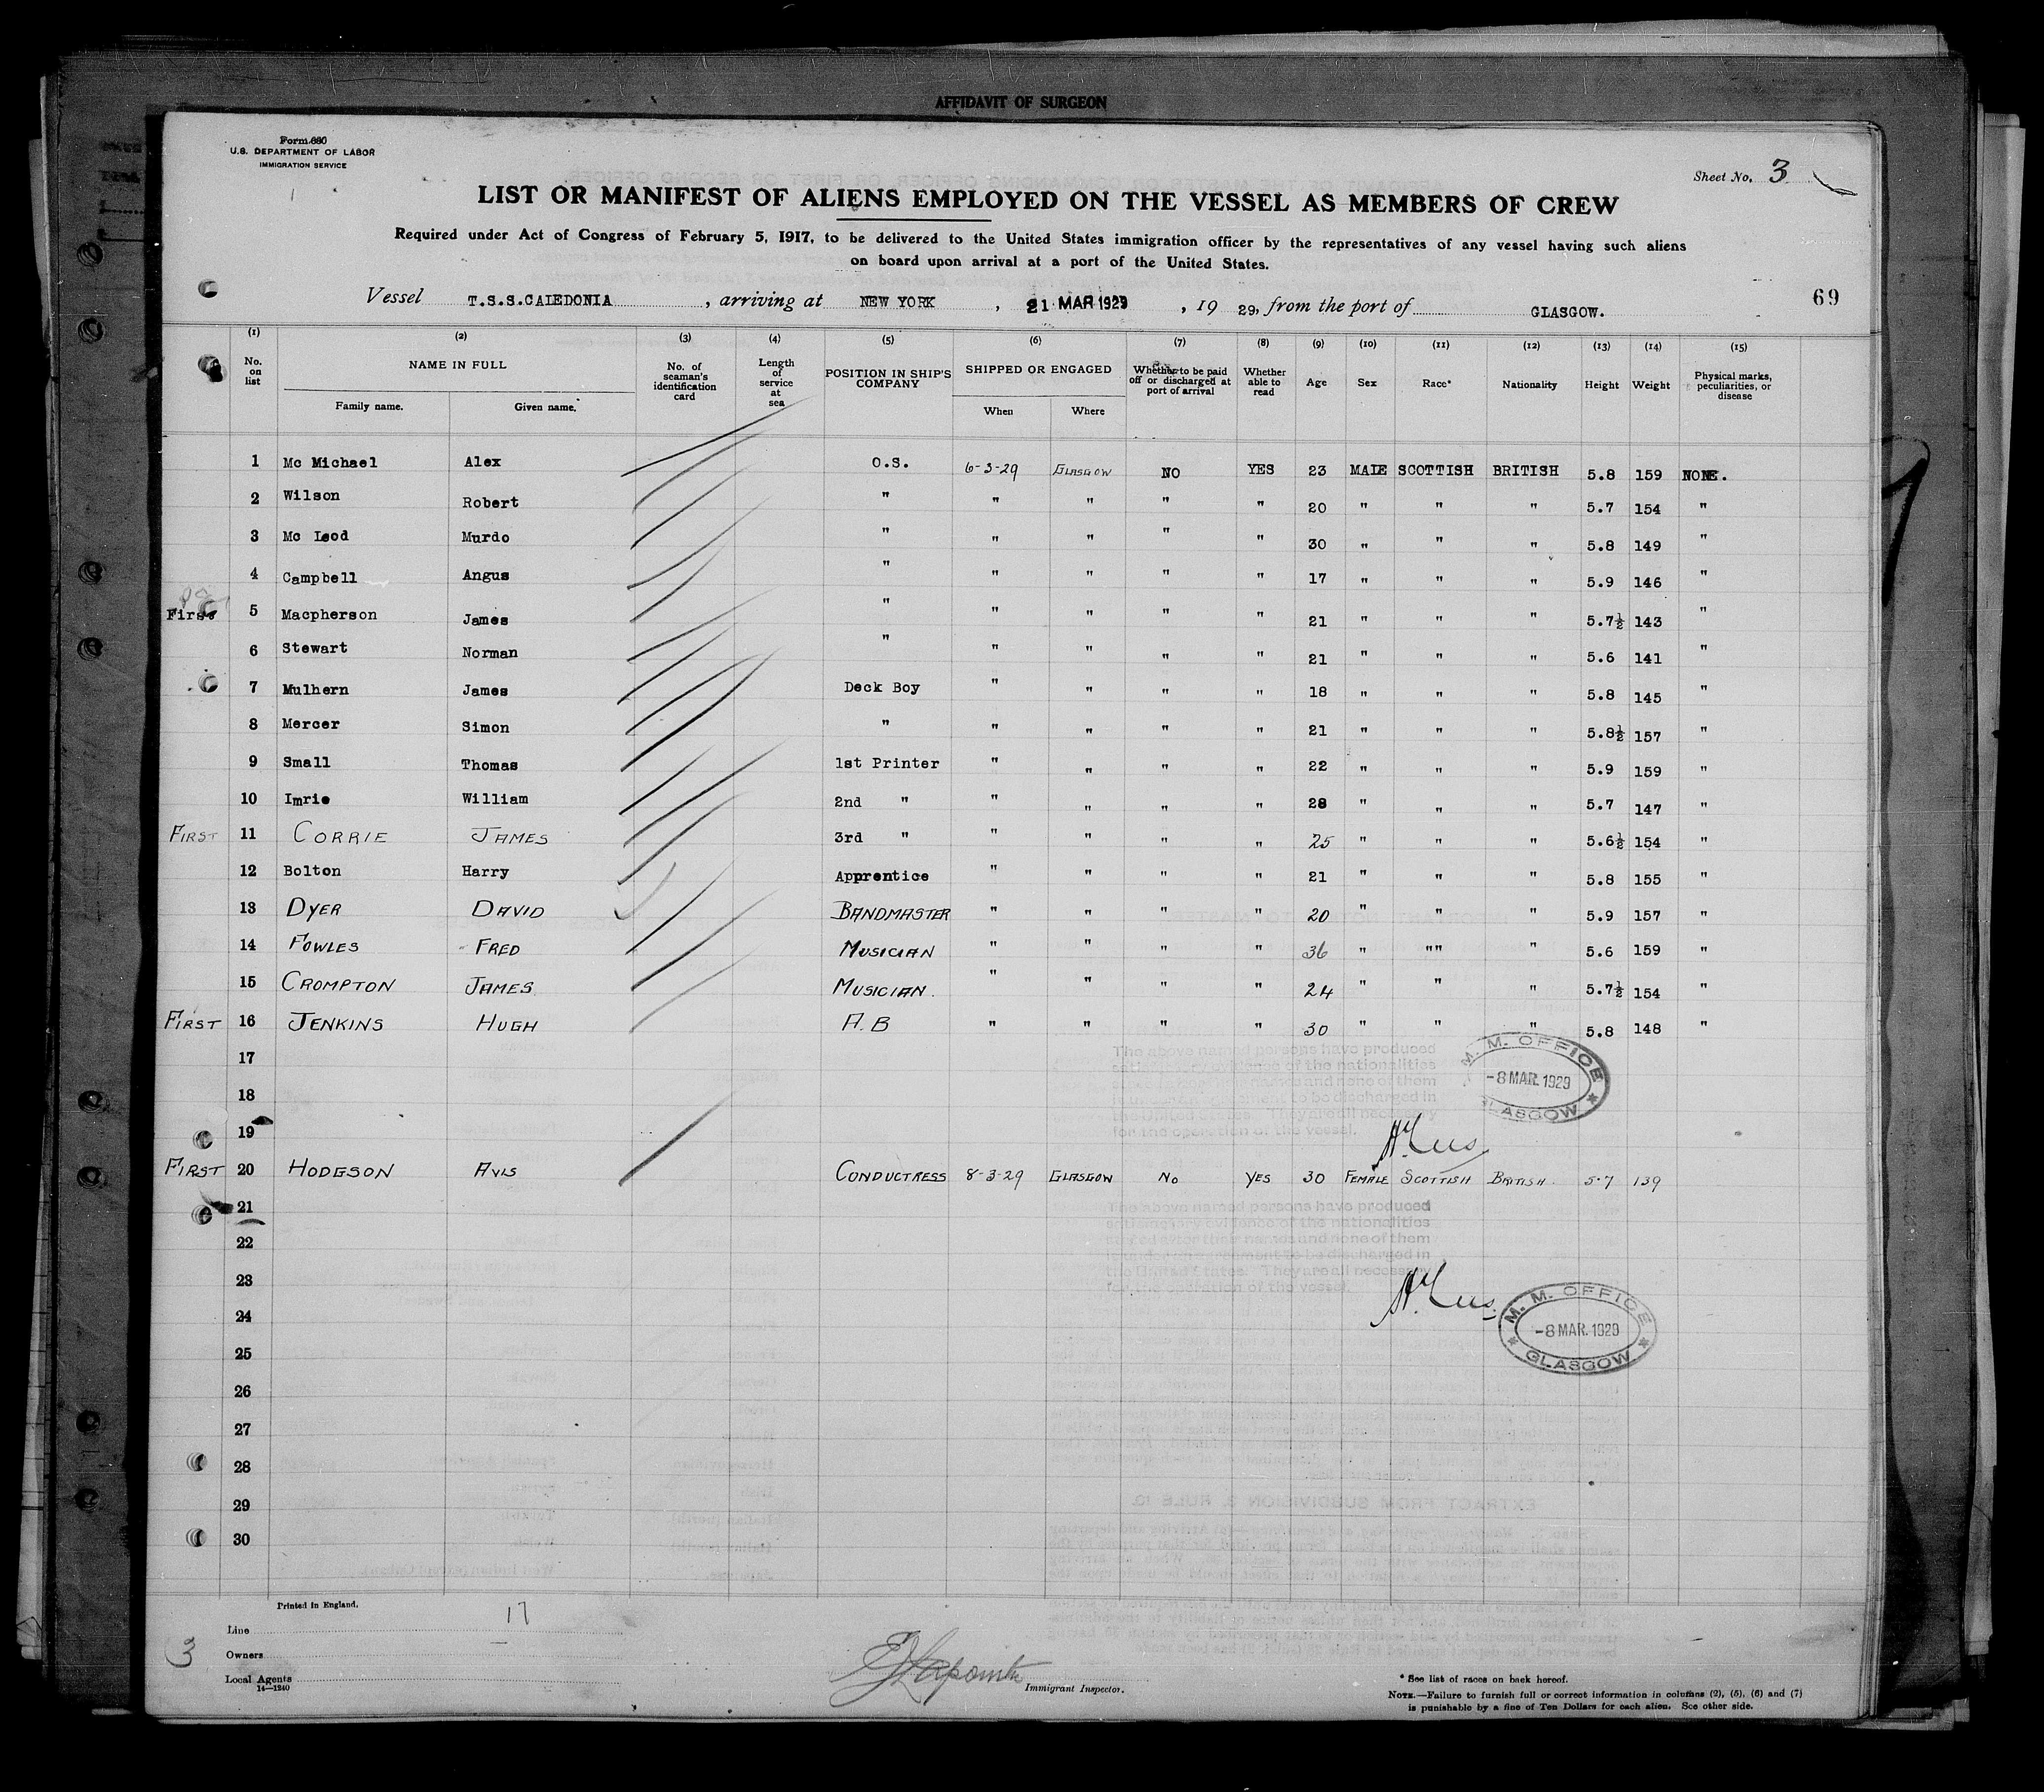 AFFIDAVIT OF SURGEON
Form 680
U.S. DEPARTMENT OF LABOR
IMMIGRATION SERVICE
Sheet No. 3
LIST OR MANIFEST OF ALIENS EMPLOYED ON THE VESSEL AS MEMBERS OF CREW
Required under Act of Congress of February 5, 1917, to be delivered to the United States immigration officer by the representatives of any vessel having such aliens
on board upon arrival at a port of the United States.
Vessel T.S.S.CALEDONIA , arriving at NEW YORK , 21 MAR 1929 , 19 29, from the port of GLASGOW.
69
(1) (2) (3) (4) (5) (6) (7) (8) (9) (10) (11) (12) (13) (14) (15)
No. on list NAME IN FULL Family name. Given name. No. of seaman's identification card Length of service at sea POSITION IN SHIP'S COMPANY SHIPPED OR ENGAGED When Where Whether to be paid off or discharged at port of arrival Whether able to read Age Sex Race* Nationality Height Weight Physical marks, peculiarities, or disease
1 Mc Michael Alex O.S. 6-3-29 GLASGOW NO YES 23 MALE SCOTTISH BRITISH 5.8 159 NONE.
2 Wilson Robert " " " " " 20 " " " 5.7 154 "
3 Mc Leod Murdo " " " " " 30 " " " 5.8 149 "
4 Campbell Angus " " " " " 17 " " " 5.9 146 "
First 5 Macpherson James " " " " " 21 " " " 5.7½ 143 "
6 Stewart Norman " " " " " 21 " " " 5.6 141 "
7 Mulhern James Deck Boy " " " " 18 " " " 5.8 145 "
8 Mercer Simon " " " " " 21 " " " 5.8½ 157 "
9 Small Thomas 1st Printer " " " " 22 " " " 5.9 159 "
10 Imrie William 2nd " " " " " 28 " " " 5.7 147 "
FIRST 11 CORRIE JAMES 3rd " " " " " 25 " " " 5.6½ 154 "
12 Bolton Harry Apprentice " " " " 21 " " " 5.8 155 "
13 DYER DAVID BANDMASTER " " " " 20 " " " 5.9 157 "
14 FOWLES FRED MUSICIAN " " " " 36 " "" " 5.6 159 "
15 CROMPTON JAMES MUSICIAN. " " " " 24 " " " 5.7½ 154 "
FIRST 16 JENKINS HUGH A.B " " " " 30 " " " 5.8 148 "
17
The above named persons have produced
satisfactory evidence of the nationalities
18
for the operation of the vessel.
M. M. OFFICE
-8 MAR. 1929
GLASGOW
19
FIRST 20 HODGSON AVIS CONDUCTRESS 8-3-29 GLASGOW NO YES 30 FEMALE SCOTTISH BRITISH. 5.7 139
21
The above named persons have produced
satisfactory evidence of the nationalities
22
set after their names and none of them
is under engagement to be discharged in
the United States. They are all necessary
for the operation of the vessel.
23
24
M. M. OFFICE
-8 MAR. 1929
GLASGOW
25
26
27
28
29
30
Printed in England.
17
Line
Owners
Local Agents
14—1240
3
Immigrant Inspector.
* See list of races on back hereof.
NOTE.—Failure to furnish full or correct information in columns (2), (5), (6) and (7)
is punishable by a fine of Ten Dollars for each alien. See other side.